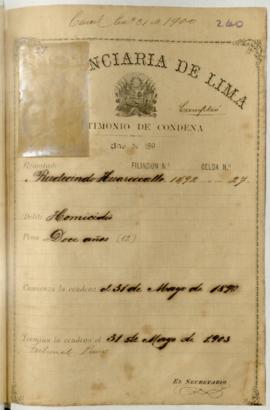 260
NCIARIA DE LIMA
Cumplió
TIMONIO DE CONDENA
Año de 189
Rematado
FILIACION N.º
CELDA N.º
Rudecindo 1892 27.
Delito Homicidio
Pena Doce años (12)
Comienza la condena el 31 de Mayo de 1891
Termina la condena el 31 de Mayo de 1903
EL SECRETARIO